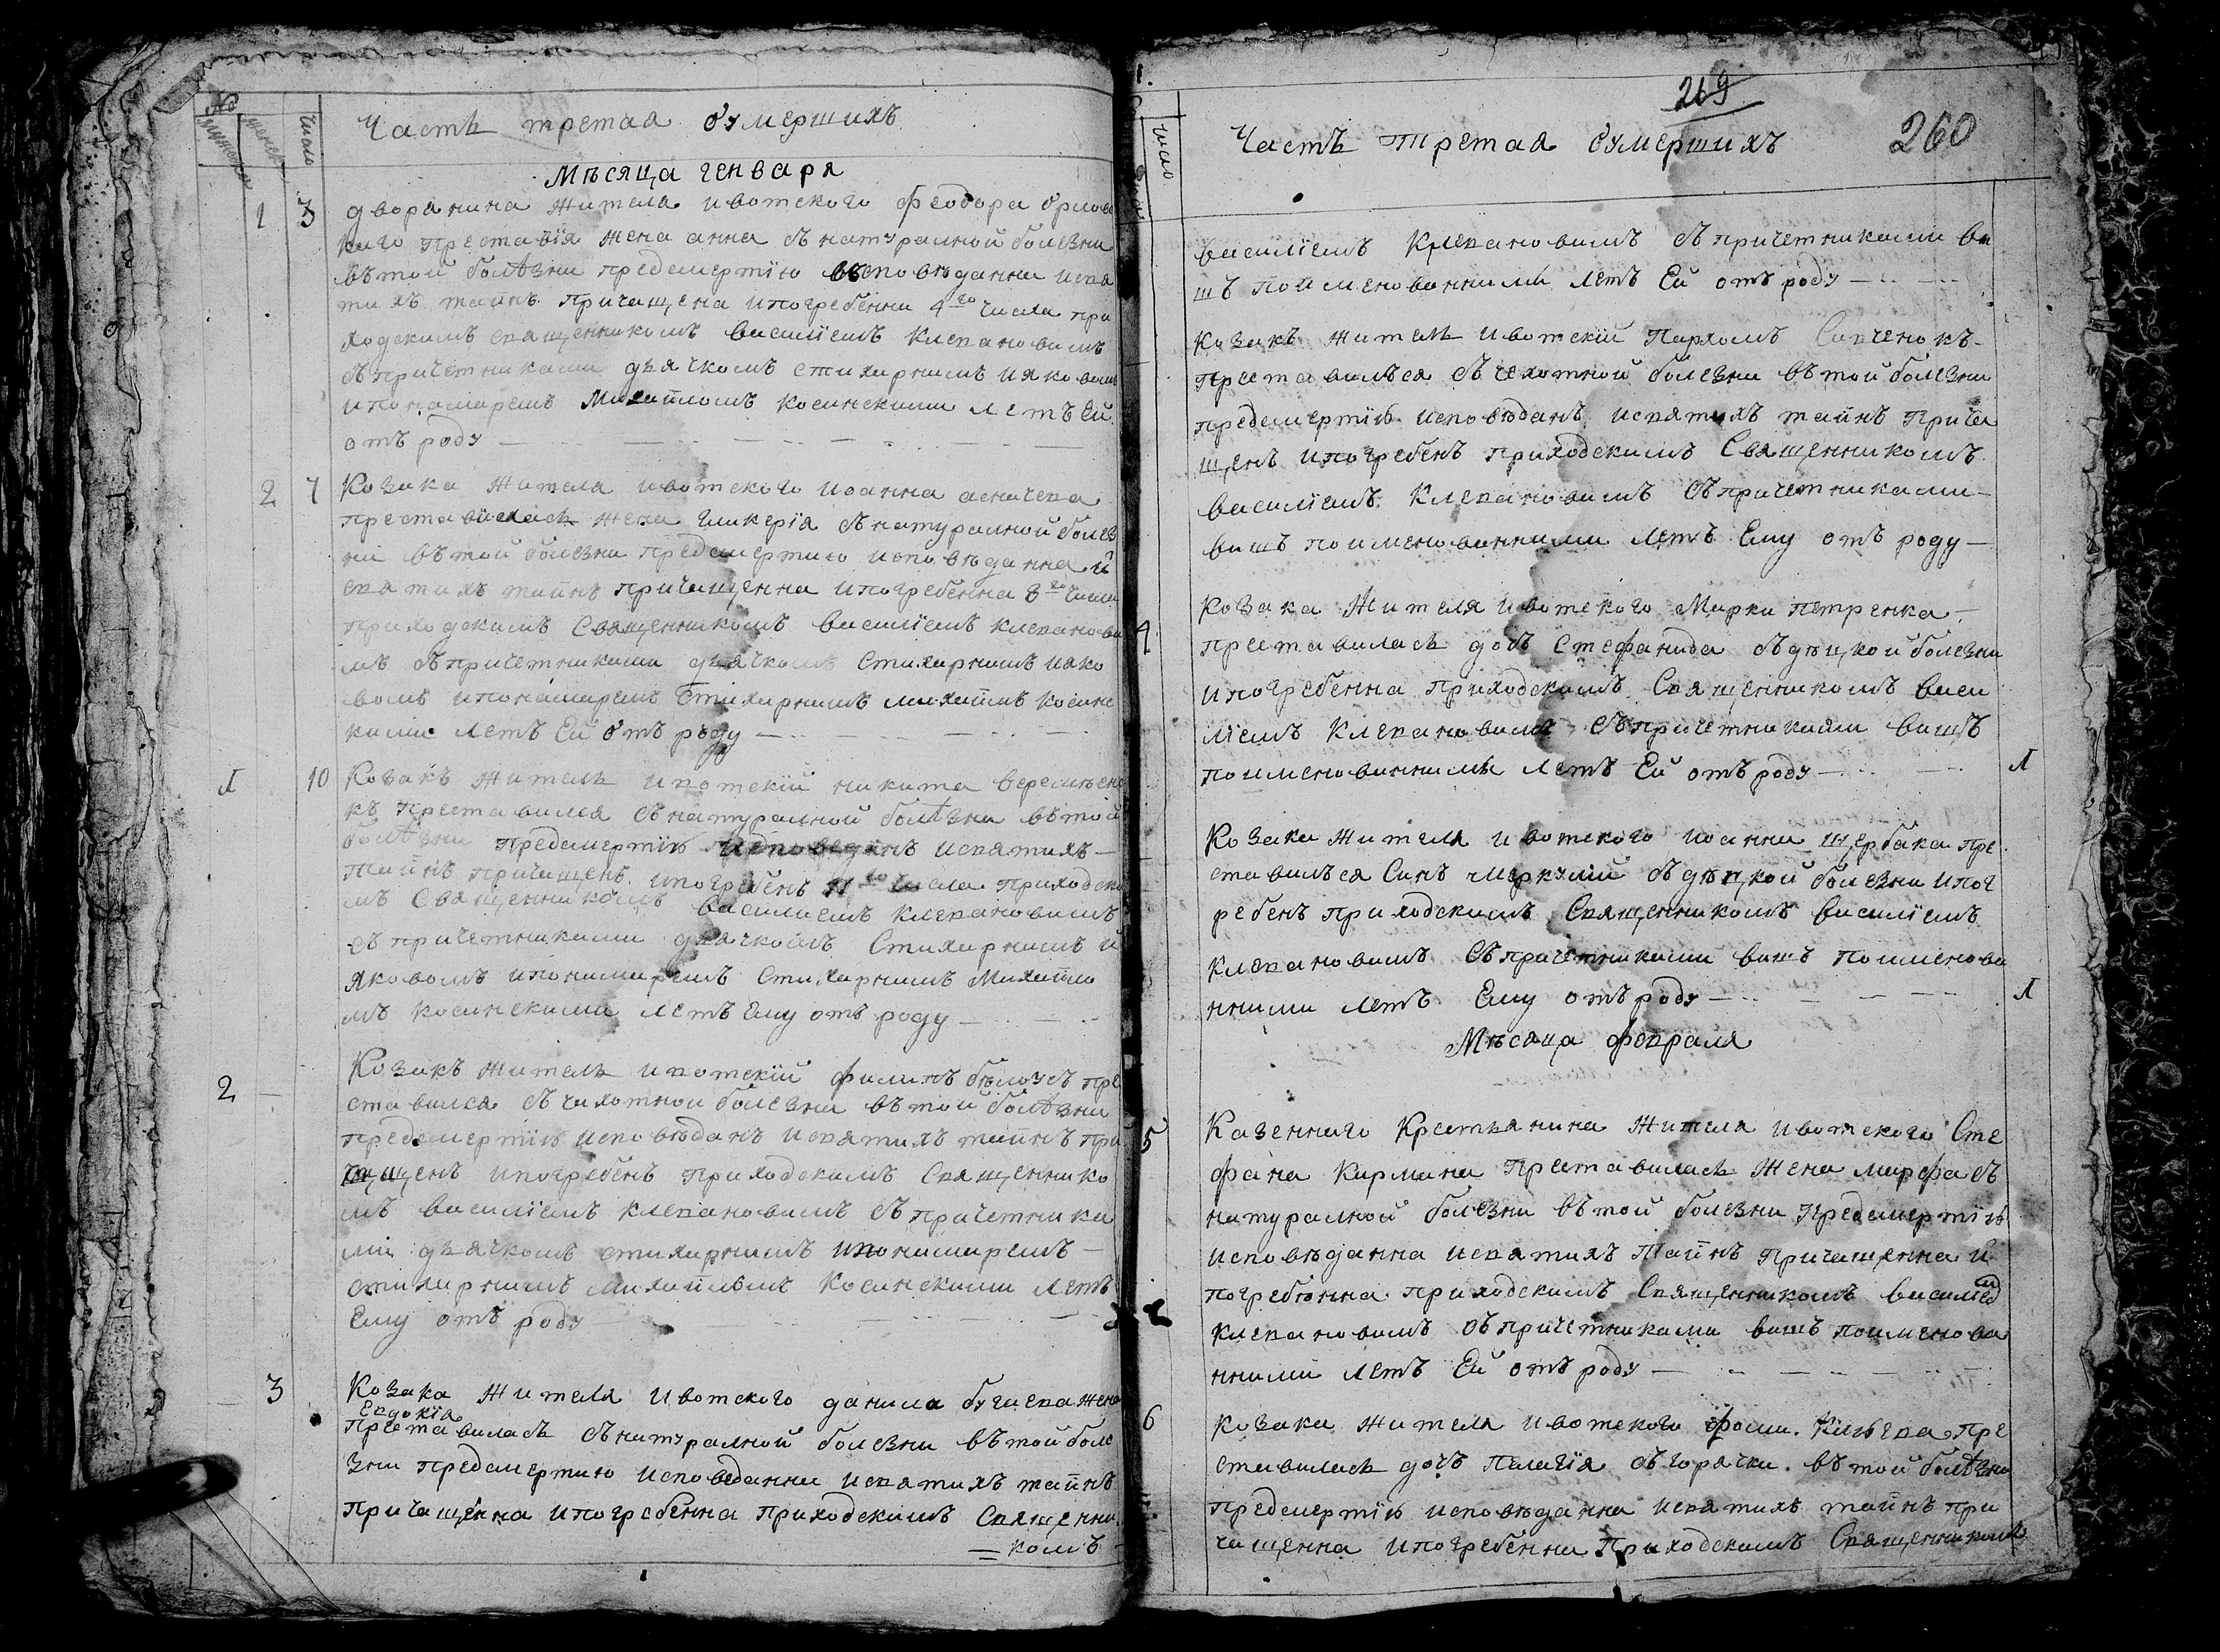 №
мужеска
женск
Число
Часть третая оумершихъ
Мѣсяца генваря
1 3 дворянина жителя ивотского феодора
кого преставія жена анна съ натуралной болезни
вътой болѣзни предсмертїю исповѣданна исвя
тихъ таинъ причащена ипогребенна 4го числа при
ходскимъ священникомъ василіемъ Клевановимъ
съпричетниками дьячкомъ стихарнимъ ияковомъ
ипонамаремъ Михайломъ косинскими летъ Ей
отъ роду
2 7 Козака жителя ивотского иоанна
преставилась жена гликерїя съ натуралной болез
ни вътой болезни предсмертию исповѣданна и
святихъ таинъ причащенна ипогребенна 8го числа
приходскимъ Священникомъ василіемъ клеванови
мъ съпричетниками дьячкомъ Стихарнимъ иако
вомъ ипонамаремъ Стихарнимъ михайломъ косинс
кими летъ Ей отъ роду
1 10 Козакъ житель ивотскій никита веремѣено
къ преставился съ натуралной болѣзни вътой
болѣзни предсмертїю исповеданъ исвятихъ
Таинъ причащенъ ипогребенъ 11го числа приходски
мъ Священникомъ василиемъ клевановимъ
съ причетниками дьячкомъ Стихарнимъ и
яковомъ ипонамаремъ Стихарнимъ Михайло
мъ косинскими летъ Ему отъ роду
2 Козакъ житель ивотскій филипъ бѣлоусъ пре
ставился съ чихотной болезни вътой болѣзни
предсмертїю исповѣданъ исвятихъ таинъ при
чащенъ ипогребенъ приходскимъ Священнико
мъ василіемъ клевановимъ съ причетника
ми дьячкомъ стихарнимъ ипонамаремъ
стихарнимъ михайломъ косинскими летъ
Ему отъ роду
3 Козака жителя ивотского данила жена
Евдокїя
преставилась съ натуралной болезни вътой боле
зни предсмертию исповеданна исвятихъ таинъ
причащенна ипогребенна приходскимъ Священни
=комъ
269
260
число
Часть третая оумершихъ
василіемъ Клевановимъ съпричетниками ви
шъ поименованними летъ Ей отъ роду
Козакъ житель ивотскїй Пархомъ Савченокъ
преставилъся съ чехотной болезни вътой болезни
предсмертїю исповѣданъ исвятихъ таинъ прича
щенъ ипогребенъ приходскимъ Священникомъ
василіемъ Клевановимъ съпричетниками
вишъ поименованними летъ Ему отъ роду
4 Козака жителя ивотского Марка петренка
преставилась дочь Стефанида съдѣцкой болезни
ипогребенна приходскимъ Священникомъ васи
ліемъ Клевановимъ съпричетниками вишъ
поименованними летъ Ей отъ роду
1
Козака жителя ивотского иоанна щербака пре
ставилъся Синъ меркулій съдѣцкой болезни ипог
ребенъ приходскимъ Священникомъ василіемъ
клевановимъ съпричетниками вишъ поименова
нними летъ Ему отъ роду
1
Мѣсяца февраля
5 Казенного Крестьянина жителя ивотского Сте
фана Кирмана преставилась жена марфа съ
натуралной болезни вътой болезни предсмертїю
исповѣданна исвятихъ Таинъ причащенна и
погребенна приходскимъ Священникомъ василіем
клевановимъ съпричетниками вишъ поименова
нними летъ Ей отъ роду
6 Козака жителя ивотского фоми пре
ставилась дочь Пелагїя съ горячки вътой болѣзни
предсмертїю исповѣданна исвятихъ таинъ при
чащенна ипогребенна Приходскимъ Священникомъ